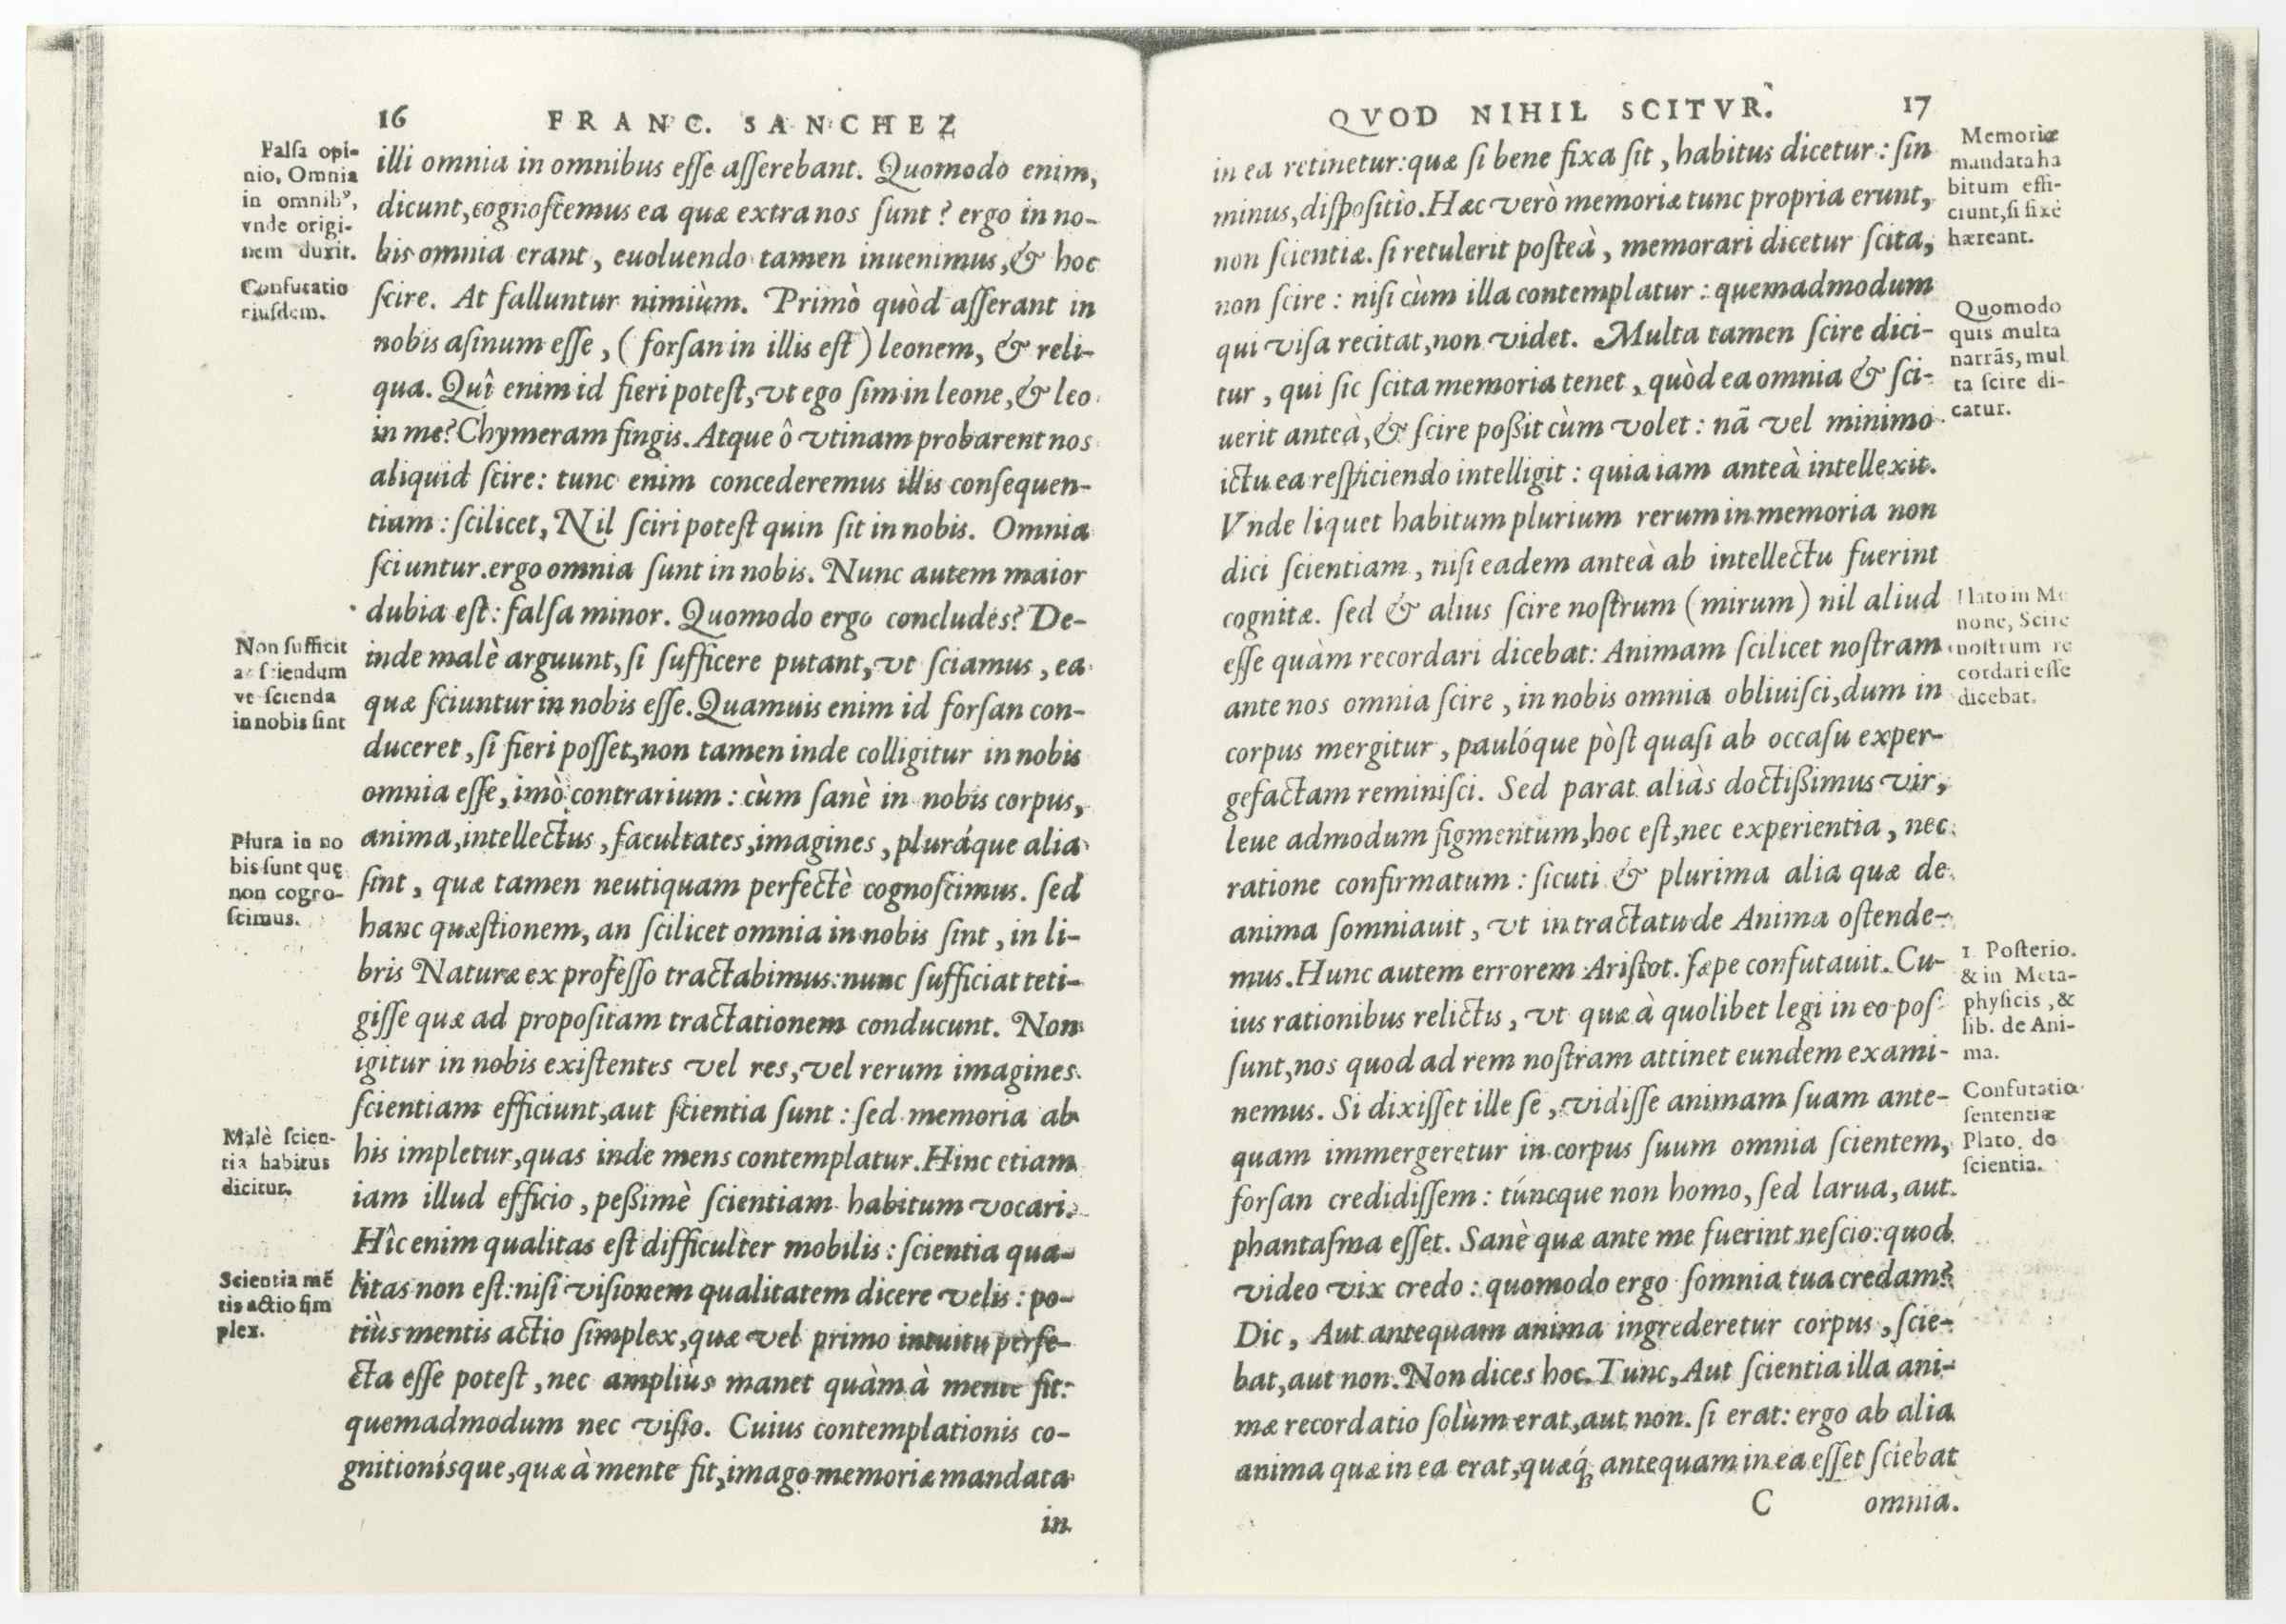 16 FRANC. SANCHEZ
Falsa opi-
nio, Omnia
in omnib⁹,
vnde origi-
nem duxit.
Confutatio
eiusdem.
illi omnia in omnibus esse asserebant. Quomodo enim,
dicunt, cognoscemus ea quæ extra nos sunt? ergo in no-
bis omnia erant, euoluendo tamen inuenimus, & hoc
scire. At falluntur nimiùm. Primò quòd asserant in
nobis asinum esse, (forsan in illis est) leonem, & reli-
qua. Quî enim id fieri potest, vt ego sim in leone, & leo
in me? Chymeram fingis. Atque ô vtinam probarent nos
aliquid scire: tunc enim concederemus illis consequen-
tiam: scilicet, Nil sciri potest quin sit in nobis. Omnia
sciuntur. ergo omnia sunt in nobis. Nunc autem maior
dubia est: falsa minor. Quomodo ergo concludes? De-
Non sufficit
ad sciendum
vt scienda
in nobis sint
inde malè arguunt, si sufficere putant, vt sciamus, ea
quæ sciuntur in nobis esse. Quamuis enim id forsan con-
duceret, si fieri posset, non tamen inde colligitur in nobis
omnia esse, imò contrarium: cùm sanè in nobis corpus,
Plura in no
bis sunt quę
non cogno-
scimus.
anima, intellectus, facultates, imagines, pluráque alia
sint, quæ tamen neutiquam perfectè cognoscimus. sed
hanc quæstionem, an scilicet omnia in nobis sint, in li-
bris Naturæ ex professo tractabimus: nunc sufficiat teti-
gisse quæ ad propositam tractationem conducunt. Non
igitur in nobis existentes vel res, vel rerum imagines
scientiam efficiunt, aut scientia sunt: sed memoria ab
Malè scien-
tia habitus
dicitur.
his impletur, quas inde mens contemplatur. Hinc etiam
iam illud efficio, peßimè scientiam habitum vocari.
Hîc enim qualitas est difficulter mobilis: scientia qua-
Scientia mē
tis actio sim
plex.
litas non est: nisi visionem qualitatem dicere velis: po-
tiùs mentis actio simplex, quæ vel primo intuitu perfe-
cta esse potest, nec ampliùs manet quàm à mente fit:
quemadmodum nec visio. Cuius contemplationis co-
gnitionísque, quæ à mente fit, imago memoriæ mandata
in
QVOD NIHIL SCITVR. 17
in ea retinetur: quæ si bene fixa sit, habitus dicetur: sin
minus, dispositio. Hæc verò memoriæ tunc propria erunt,
non scientiæ. si retulerit posteà, memorari dicetur scita,
non scire: nisi cùm illa contemplatur: quemadmodum
qui visa recitat, non videt. Multa tamen scire dici-
tur, qui sic scita memoria tenet, quòd ea omnia & sci-
uerit anteà, & scire poßit cùm volet: nã vel minimo
ictu ea respiciendo intelligit: quia iam anteà intellexit.
Vnde liquet habitum plurium rerum in memoria non
dici scientiam, nisi eadem anteà ab intellectu fuerint
cognitæ. sed & alius scire nostrum (mirum) nil aliud
esse quàm recordari dicebat: Animam scilicet nostram
ante nos omnia scire, in nobis omnia obliuisci, dum in
corpus mergitur, paulóque pòst quasi ab occasu exper-
gefactam reminisci. Sed parat aliàs doctißimus vir,
leue admodum figmentum, hoc est, nec experientia, nec
ratione confirmatum: sicuti & plurima alia quæ de
anima somniauit, vt in tractatu de Anima ostende-
mus. Hunc autem errorem Aristot. sæpe confutauit. Cu-
ius rationibus relictis, vt quæ à quolibet legi in eo pos-
sunt, nos quod ad rem nostram attinet eundem exami-
nemus. Si dixisset ille se, vidisse animam suam ante-
quam immergeretur in corpus suum omnia scientem,
forsan credidissem: túncque non homo, sed larua, aut
phantasma esset. Sanè quæ ante me fuerint nescio: quod
video vix credo: quomodo ergo somnia tua credam?
Dic, Aut antequam anima ingrederetur corpus, scie-
bat, aut non. Non dices hoc. Tunc, Aut scientia illa ani-
mæ recordatio solùm erat, aut non. si erat: ergo ab alia
anima quæ in ea erat, quæq́; antequam in ea esset sciebat
C omnia.
Memoriæ
mandata ha
bitum effi-
ciunt, si fixè
hæreant.
Quomodo
quis multa
narrãs, mul
ta scire di-
catur.
Plato in Me
none, Scire
nostrum re
cordari esse
dicebat.
1. Posterio.
& in Meta-
physicis, &
lib. de Ani-
ma.
Confutatio
sententiæ
Plato. de
scientia.